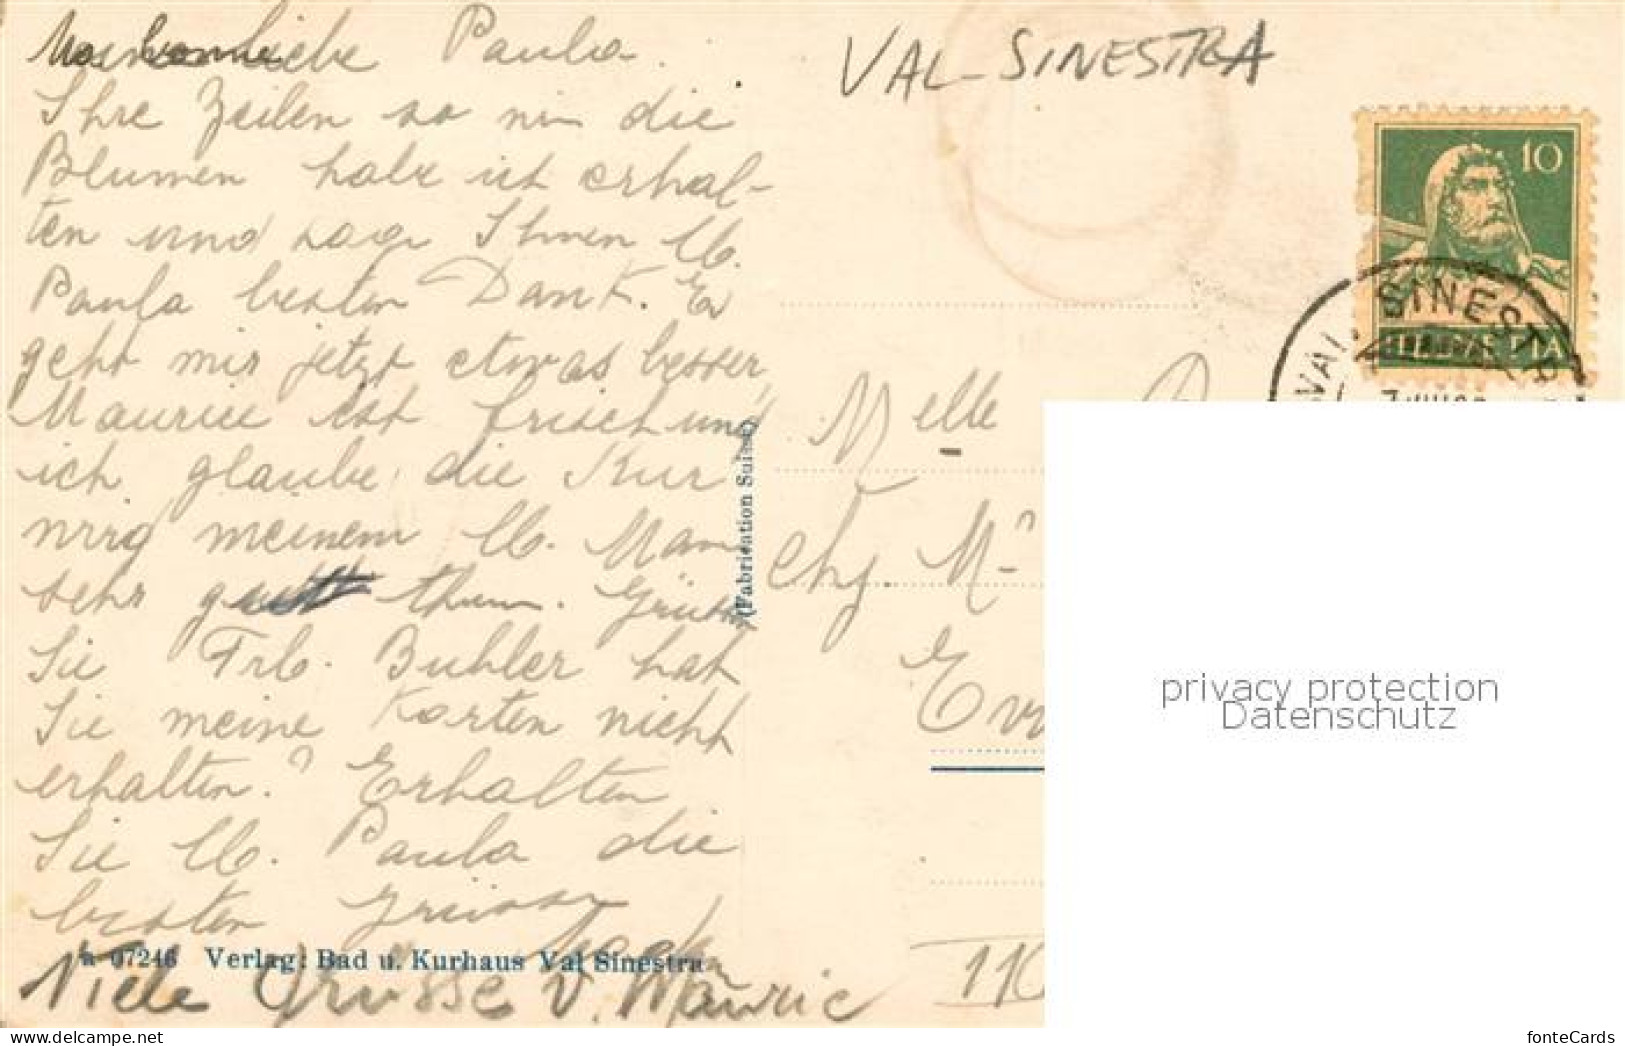 liebe Paula.
Ihre Zeilen so nun die
Blumen habe ich erhal-
ten und sage Ihnen lb.
Paula besten Dank. Es
geht mir jetzt etwas besser,
Maurice ist frisch und
ich glaube, die Kur
wird meinem lb. Mann
sehr gutt thun. Grüssen
Sie Frl. Buhler hat
Sie meine Karten nicht
erhalten? Erhalten
Sie lb. Paula die
besten Grüsse
a 07246 Verlag: Bad u. Kurhaus Val Sinestra
Viele Grüsse v. Mauric
(Fabrication Suisse)
VAL SINESTRA
10
HELVETIA
VAL SINESTR
Melle
chz M-
110
privacy protection
Datenschutz
fonteCards